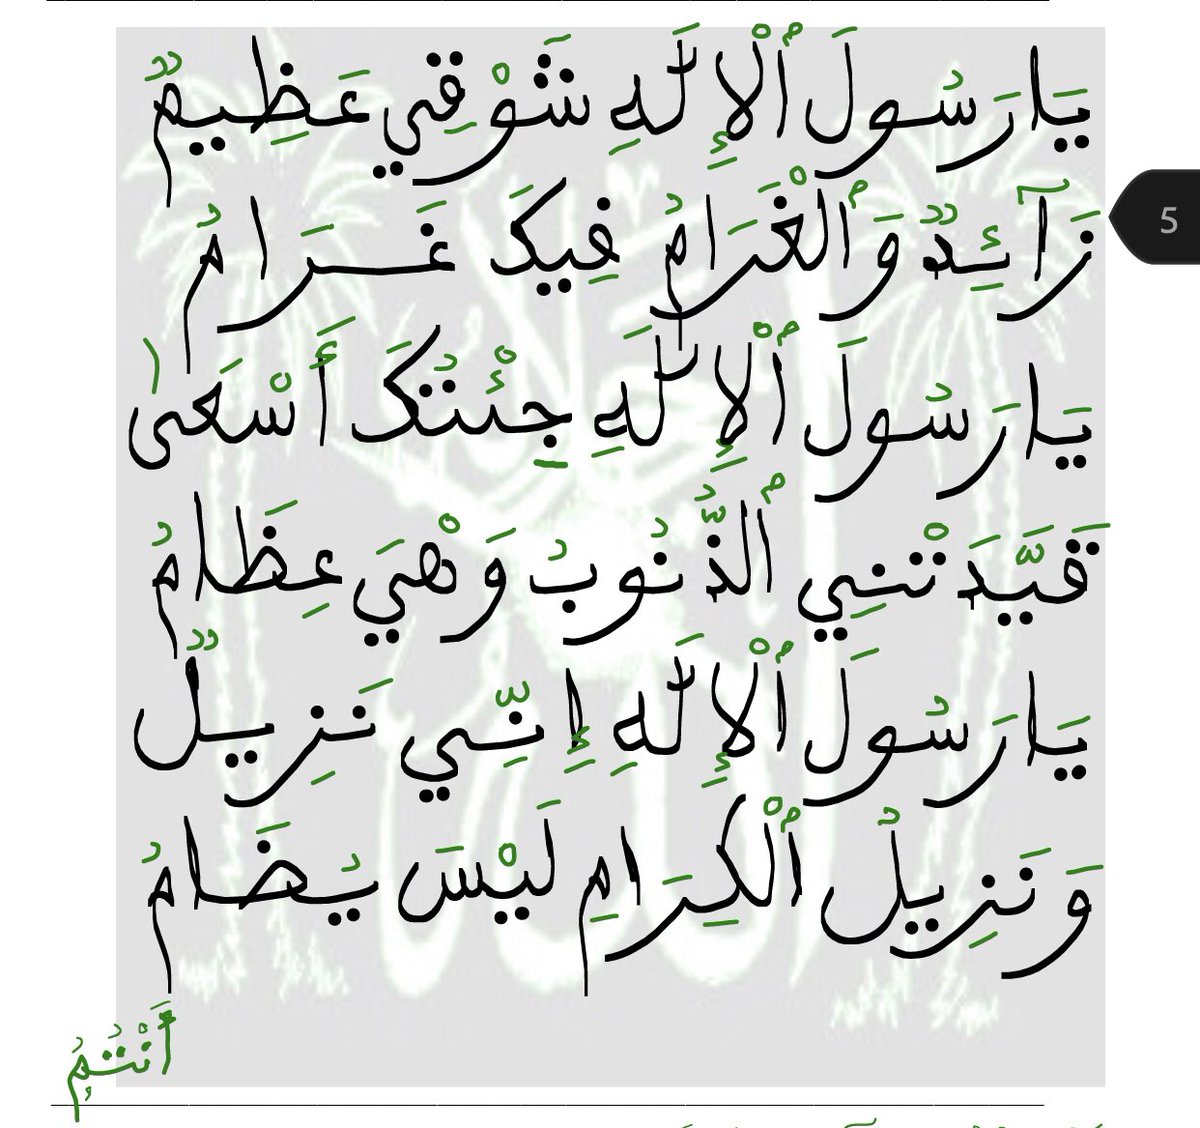 يَارَسُولَ ٱلْإِلَٰهِ شَوْقِي عَظِيمٌ
زَآئِدٌ وَٱلْغَرَامُ فِيكَ غَرَامُ
يَارَسُولَ ٱلْإِلَٰهِ جِئْتُكَ أَسْعَىٰ
قَيَّدَتْنِي ٱلذُّنُوبُ وَهْيَ عِظَامُ
يَارَسُولَ ٱلْإِلَٰهِ إِنِّي نَزِيلٌ
وَنَزِيلُ ٱلْكِرَامِ لَيْسَ يُضَامُ
أَنْتُمُ
5